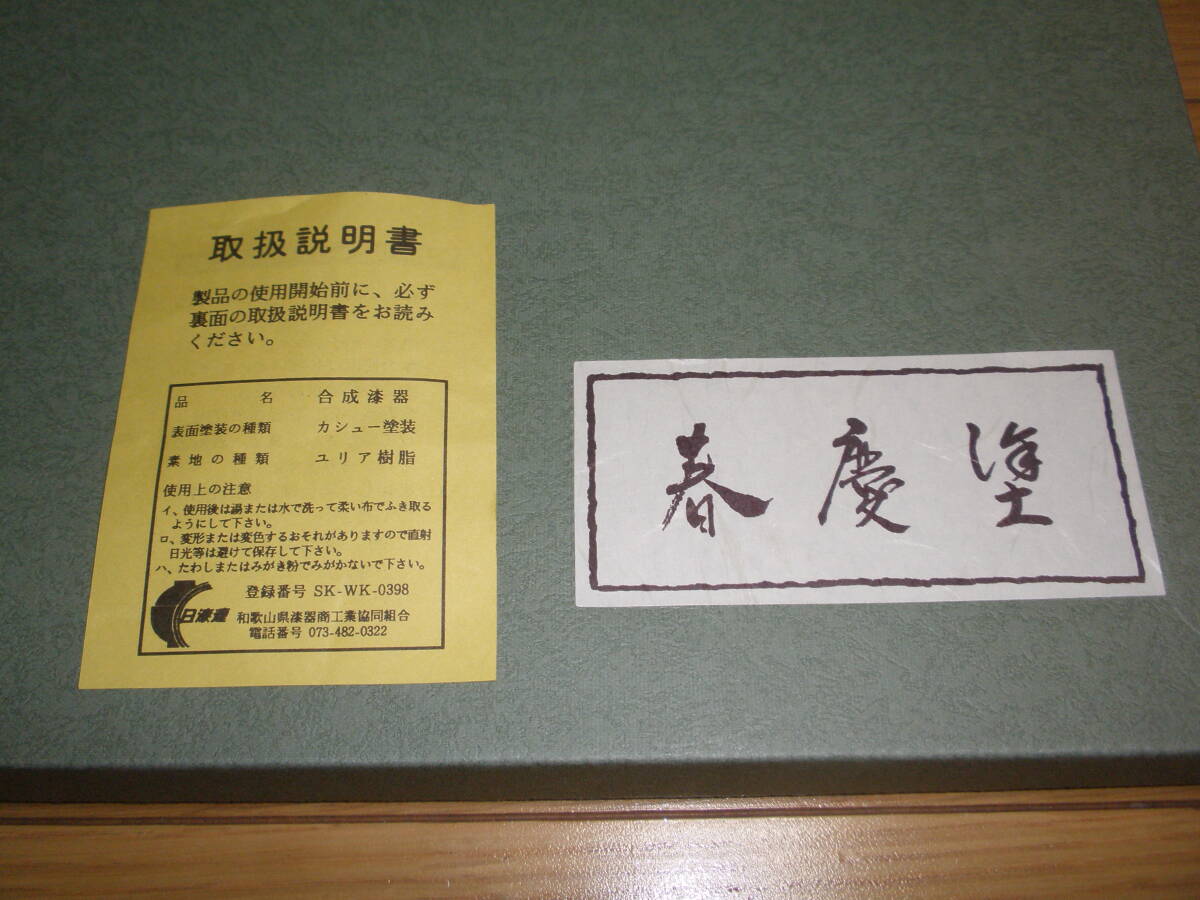 取扱説明書
製品の使用開始前に、必ず
裏面の取扱説明書をお読み
ください。
品名 合成漆器
表面塗装の種類 カシュー塗装
素地の種類 ユリア樹脂
使用上の注意
イ、使用後は湯または水で洗って柔い布でふき取る
ようにして下さい。
ロ、変形または変色するおそれがありますので直射
日光等は避けて保存して下さい。
ハ、たわしまたはみがき粉でみがかないで下さい。
登録番号 SK-WK-0398
日漆連 和歌山県漆器商工業協同組合
電話番号 073-482-0322
春慶塗